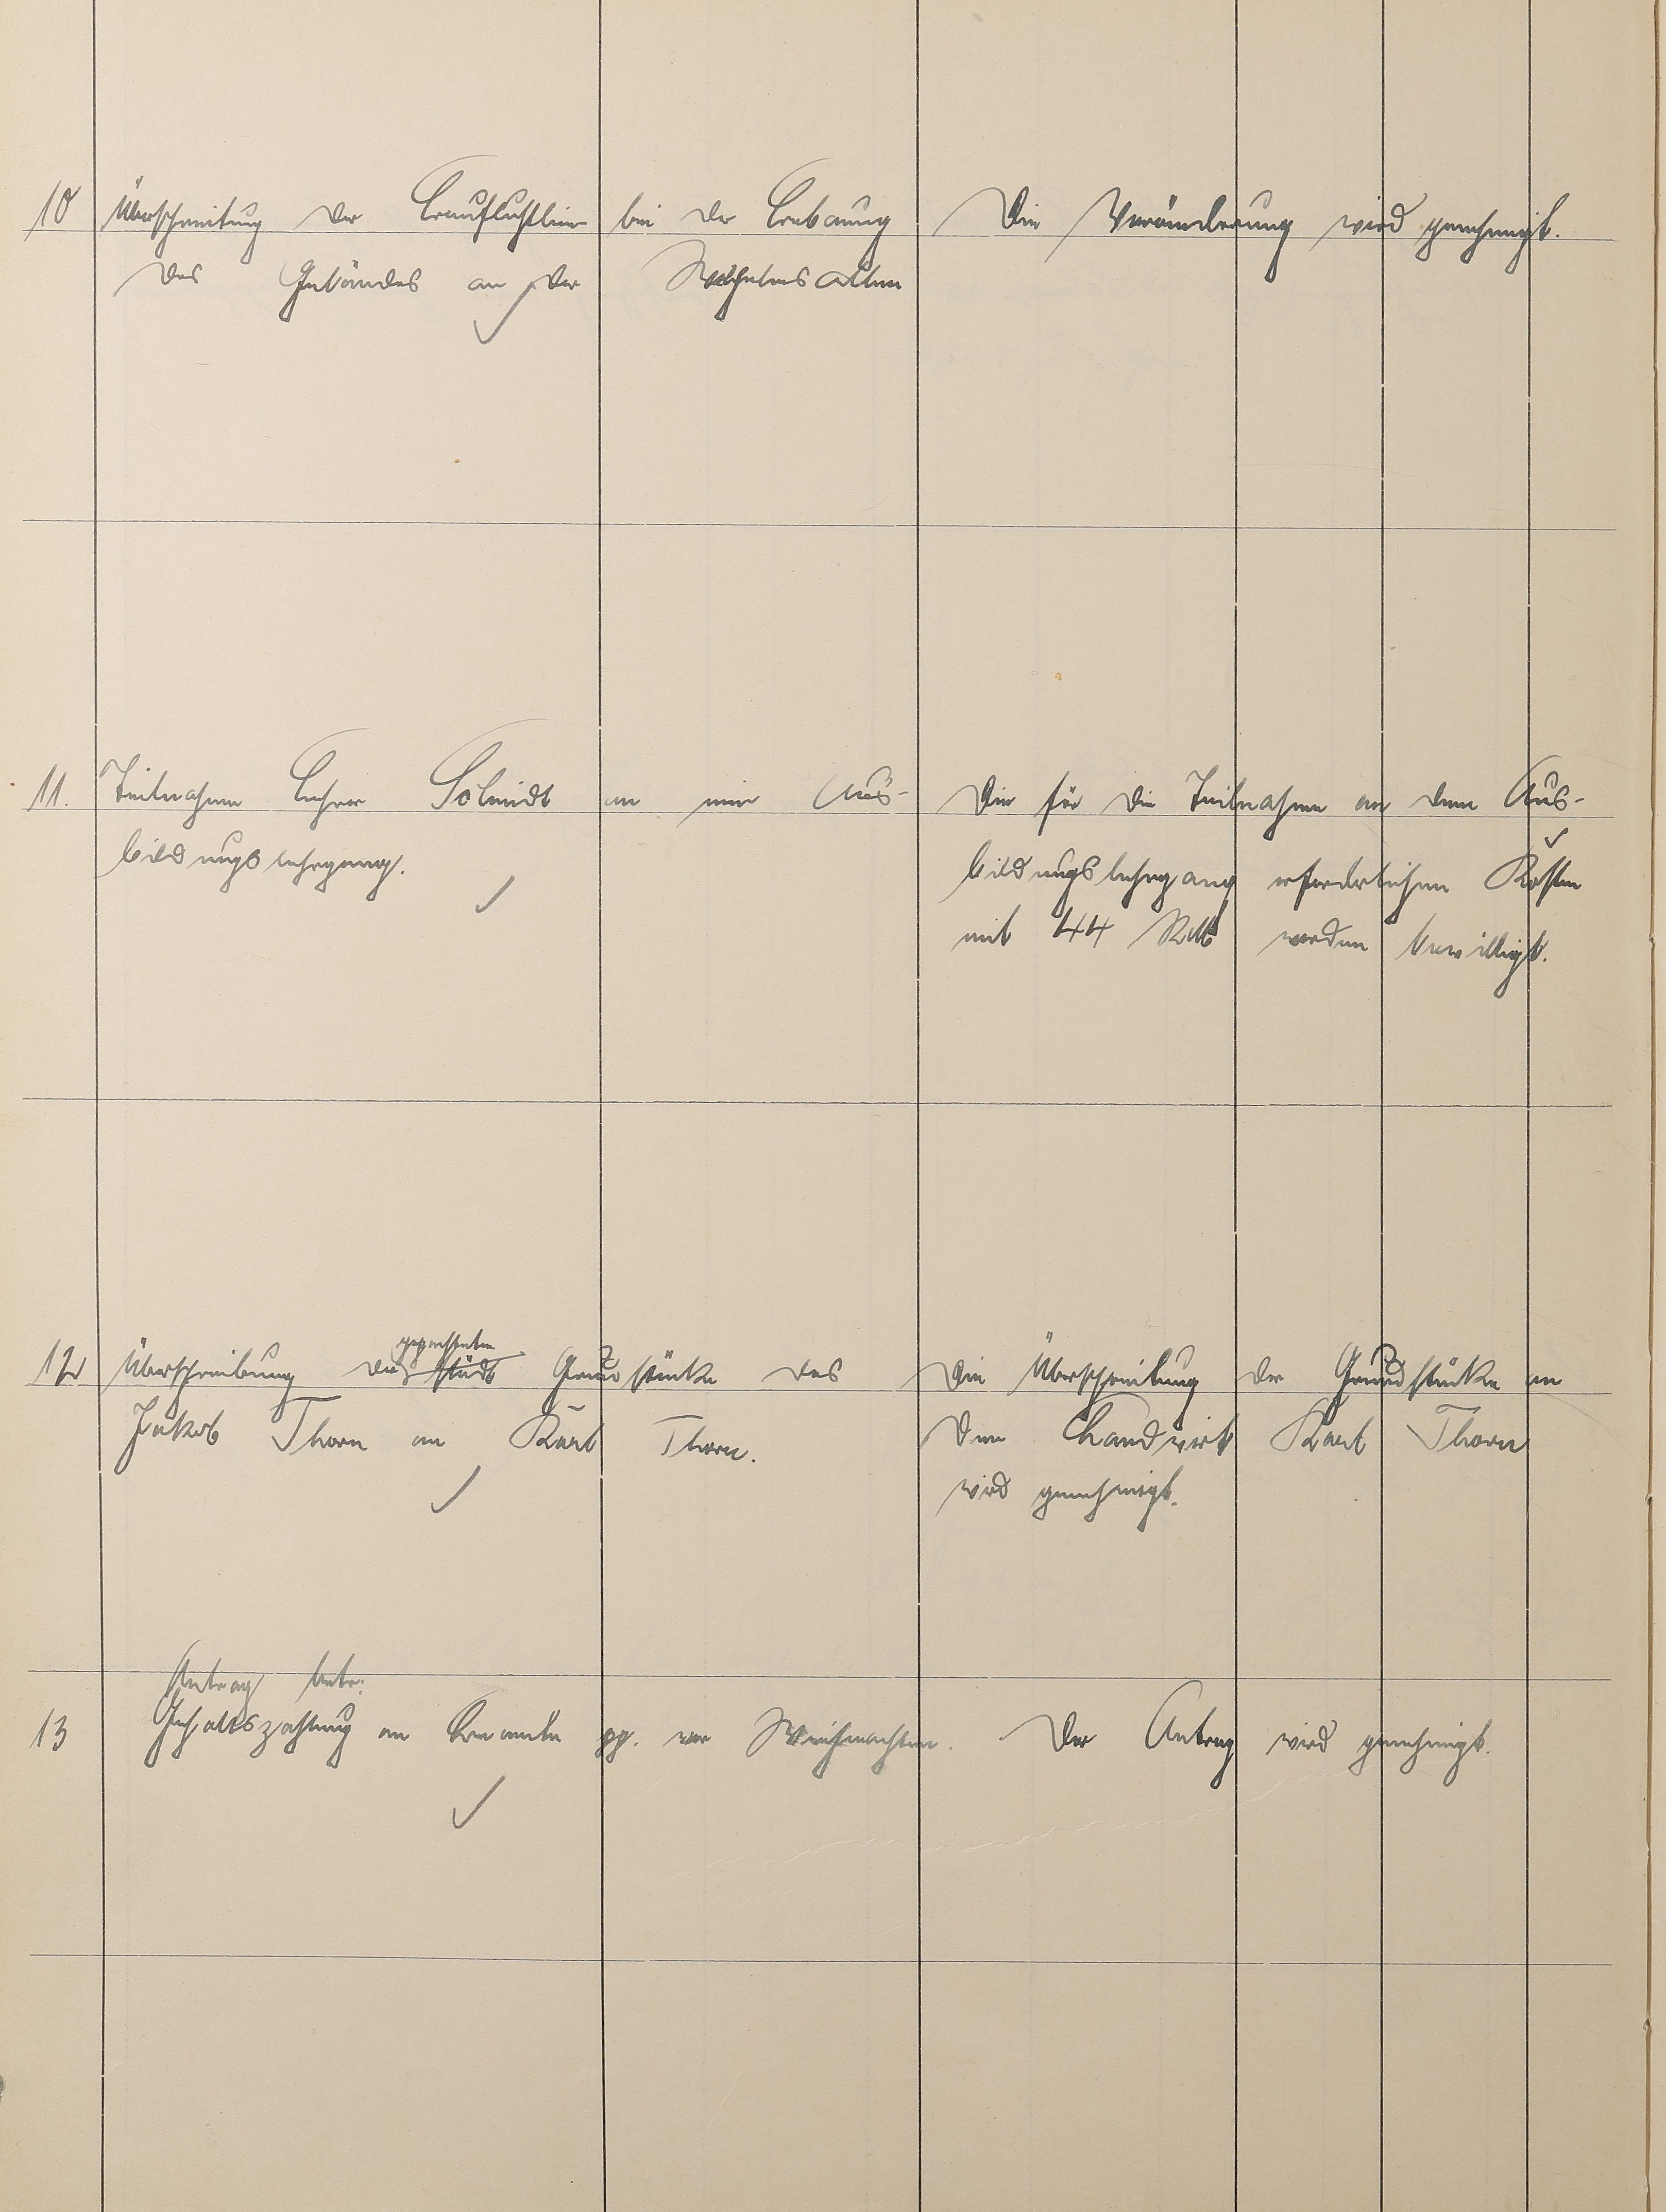 10 Überschreitung der Baufluchtlinie bei der Bebauung
des Geländes an der Wilhelmsallee
Die Veränderung wird genehmigt.
11. Teilnahme Lehrer Schmidt an einer Aus-
bildungslehrgang.
Die für die Teilnahme an dem Aus-
bildungslehrgang erforderlichen Kosten
mit 44 RM werden bewilligt.
gepachteten
12 Überschreibung der städt Grundstücke des
Jakob Thorn an Karl Thorn.
Die Überschreibung der Grundstücke an
den Landwirt Karl Thorn
wird genehmigt.
Antrag betr.
13 Gehaltszahlung an Beamte pp. vor Weihnachten.
Der Antrag wird genehmigt.